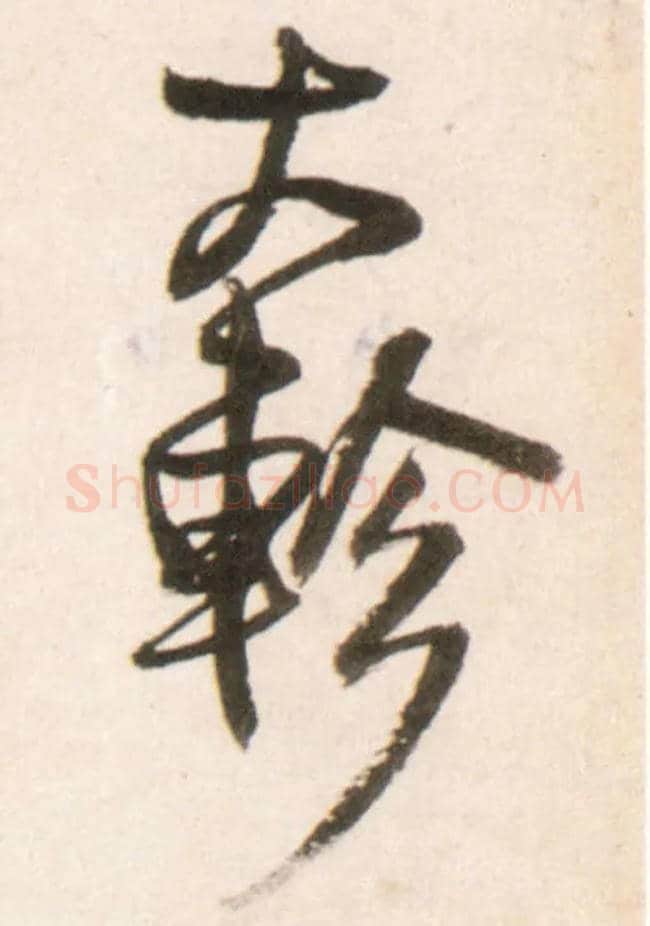 軫
Shufaziliao.COM